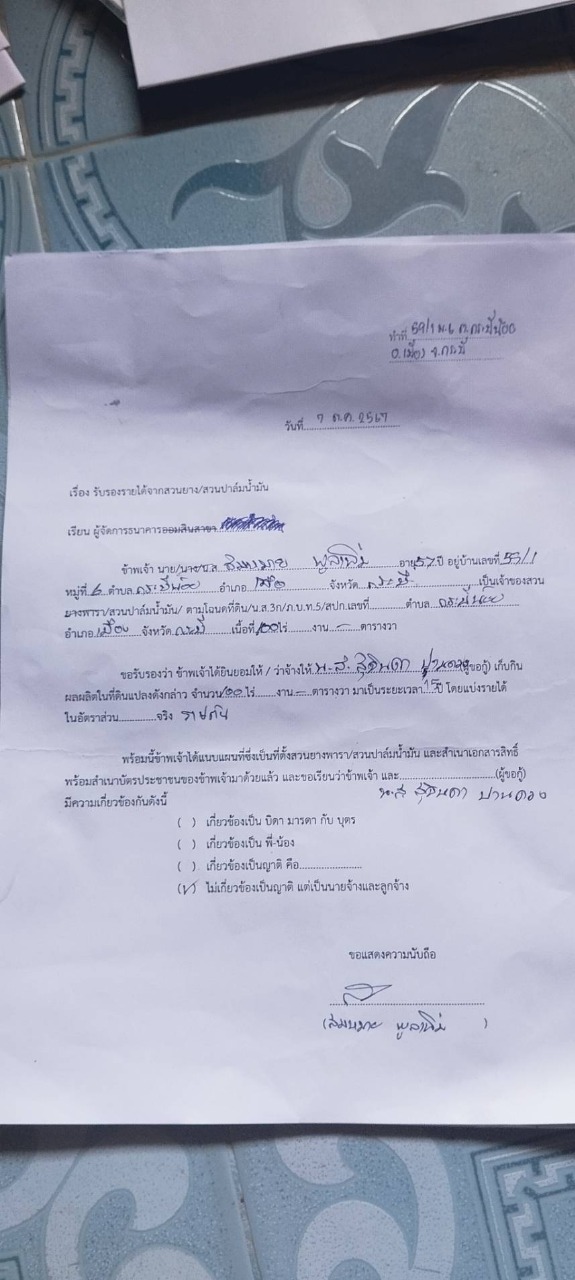 ทำที่ 59/1 ม.6 ต.กระบี่น้อย
อ.เมือง จ.กระบี่
วันที่ 7 ต.ค. 2567
เรื่อง รับรองรายได้จากสวนยาง/สวนปาล์มน้ำมัน
เรียน ผู้จัดการธนาคารออมสินสาขา
ข้าพเจ้า นาย/นาง/น.ส. สมหมาย อายุ 57 ปี อยู่บ้านเลขที่ 59/1
หมู่ที่ 6 ตำบล กระบี่น้อย อำเภอ เมือง จังหวัด กระบี่ เป็นเจ้าของสวน
ยางพารา/สวนปาล์มน้ำมัน/ ตามโฉนดที่ดิน/น.ส.3ก/ภ.บ.ท.5/สปก.เลขที่ ตำบล กระบี่น้อย
อำเภอ เมือง จังหวัด กระบี่ เนื้อที่ 100 ไร่ งาน - ตารางวา
ขอรับรองว่า ข้าพเจ้าได้ยินยอมให้ / ว่าจ้างให้ น.ส. สุจินดา ปานดวง (ผู้ขอกู้) เก็บกิน
ผลผลิตในที่ดินแปลงดังกล่าว จำนวน 100 ไร่ งาน - ตารางวา มาเป็นระยะเวลา 15 ปี โดยแบ่งรายได้
ในอัตราส่วน จริง รายตัน
พร้อมนี้ข้าพเจ้าได้แนบแผนที่ซึ่งเป็นที่ตั้งสวนยางพารา/สวนปาล์มน้ำมัน และสำเนาเอกสารสิทธิ์
พร้อมสำเนาบัตรประชาชนของข้าพเจ้ามาด้วยแล้ว และขอเรียนว่าข้าพเจ้า และ (ผู้ขอกู้)
น.ส สุจินดา ปานดวง
มีความเกี่ยวข้องกันดังนี้
( ) เกี่ยวข้องเป็น บิดา มารดา กับ บุตร
( ) เกี่ยวข้องเป็น พี่-น้อง
( ) เกี่ยวข้องเป็นญาติ คือ
(✓) ไม่เกี่ยวข้องเป็นญาติ แต่เป็นนายจ้างและลูกจ้าง
ขอแสดงความนับถือ
(สมหมาย )